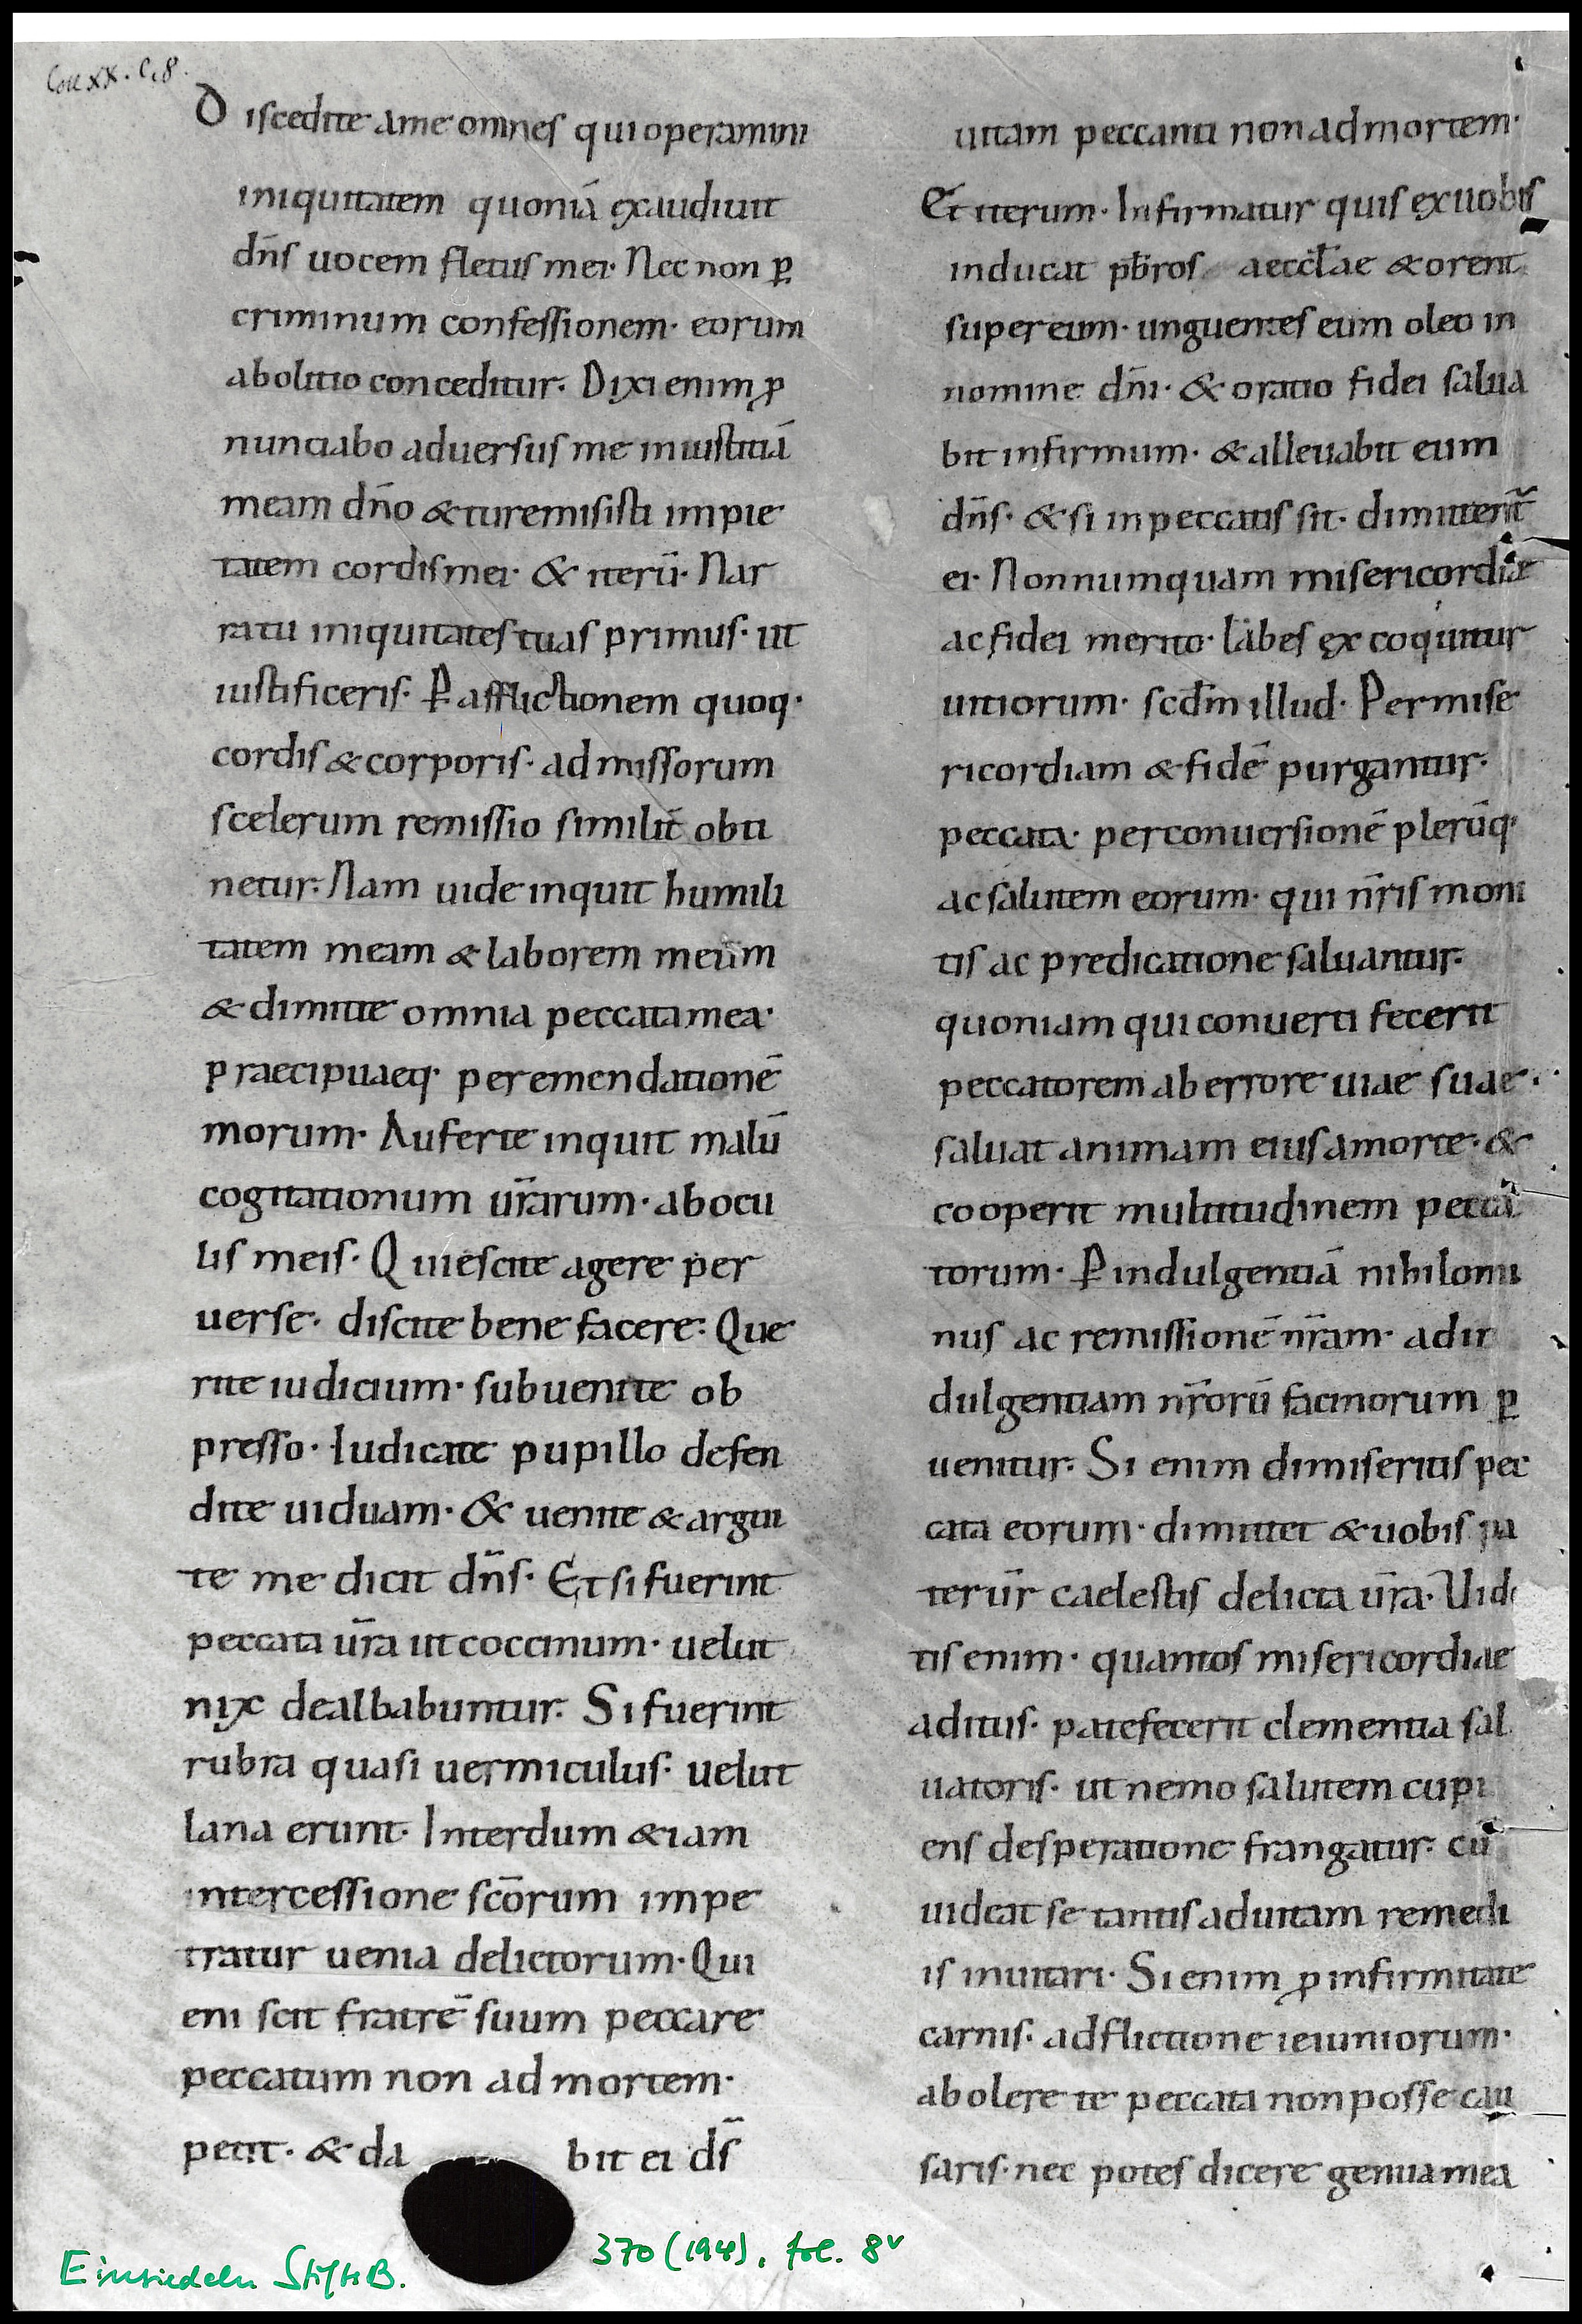 Coll xx. C. 8.
Discedite ame omnes qui operamini
iniquitatem quoniā exaudiuit
dn̄s uocem fletus mei· Nec non ꝑ
criminum confessionem· eorum
abolitio conceditur· Dixi enim ꝓ
nunciabo aduersus me iniustitiā
meam dn̄o & tu remisisti impie
tatem cordis mei· & iterū· Nar
ra tu iniquitates tuas primus· ut
iustificeris· Ꝑ afflictionem quoq·
cordis & corporis· admissorum
scelerum remissio similit̄ obti
netur· Nam uide inquit humili
tatem meam & laborem meum
& dimitte omnia peccata mea·
praecipuaeq· per emendationē
morum· Auferte inquit malū
cogitationum ur̄arum· ab ocu
lis meis· Quiescite agere per
uerse· discite bene facere· Que
rite iudicium· subuenite ob
presso· Iudicate pupillo defen
dite uiduam· & uenite & argui
te me dicit dn̄s· Et si fuerint
peccata ur̄a ut coccinum· uelut
nix dealbabuntur· Si fuerint
rubra quasi uermiculus· uelut
lana erunt· Interdum & iam
intercessione sc̄orum impe
tratur uenia delictorum· Qui
eni scit fratrē suum peccare
peccatum non ad mortem·
petit· & da bit ei d̄s
uitam peccanti non ad mortem·
Et iterum· Infirmatur quis ex uobis
inducat pb̄ros aeccl̄ae & orent
super eum· unguentes eum oleo in
nomine dn̄i· & oratio fidei salua
bit infirmum· & alleuabit eum
dn̄s· & si in peccatis sit· dimittent̄
ei· Nonnumquam misericordiae
ac fidei merito· labes excoquitur
uitiorum· scd̄m illud· Per mise
ricordiam & fidē purgantur·
peccata· per conuersionē plerūq·
ac salutem eorum· qui nr̄is moni
tis ac predicatione saluantur·
quoniam qui conuerti fecerit
peccatorem ab errore uiae suae·
saluat animam eius a morte· &
cooperit multitudinem pecca
torum· Ꝑ indulgentiā nihilomi
nus ac remissionē nr̄am· ad in
dulgentiam nr̄orū facinorum ꝑ
uenitur· Si enim dimiseritis pec
cata eorum· dimittet & uobis pa
ter ur̄ caelestis delicta ur̄a· Uide
tis enim· quantos misericordiae
aditus· patefecerit clementia sal
uatoris· ut nemo salutem cupi
ens desperatione frangatur· cū
uideat se tantis ad uitam remedi
is inuitari· Si enim ꝓ infirmitate
carnis· adflictione ieiuniorum·
abolere te peccata non posse cau
saris· nec potes dicere genua mea
Einsiedeln StiftsB. 370 (194), fol. 8v